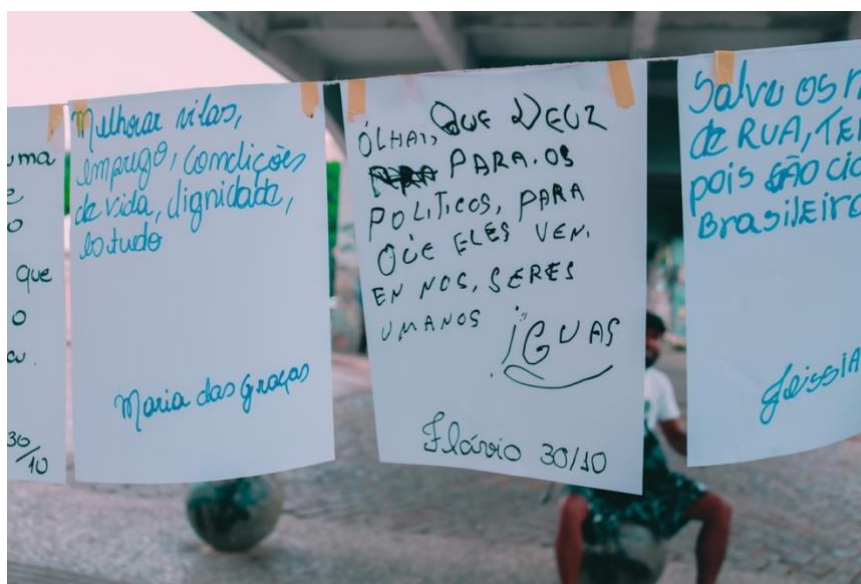 uma
e
o
que
o
30/10
Melhorar vilas,
emprego, condições
de vida, dignidade,
estudo
Maria das Graças
OLHAI, QUE DEUZ
PARA. OS
POLITICOS, PARA
QUE ELES VEN,
EN NOS, SERES
UMANOS IGUAS
Flávio 30/10
Salve os
de RUA, TE
pois SÃO CID
BrasilEiro